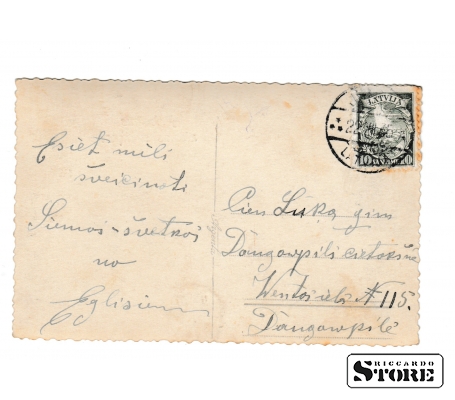 Esiet mīli
sveicinati
Siemos-svetkos
no
Eglisiem
LATVIJA
10 10
Pien Luka gim
Daugawpili cietoksni
Wentas iela N 115.
Daugawpilē
RICCARDO
STORE